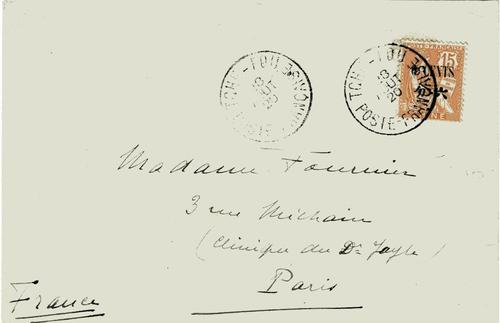 TCHE-TOU
POSTE FRANÇAISE
TCHE-TOU
POSTE-FRANÇAISE
POSTE FRANÇAISE
15
Madame Fournier
3 rue Méchain
(Clinique du Dr Jayle)
Paris
France